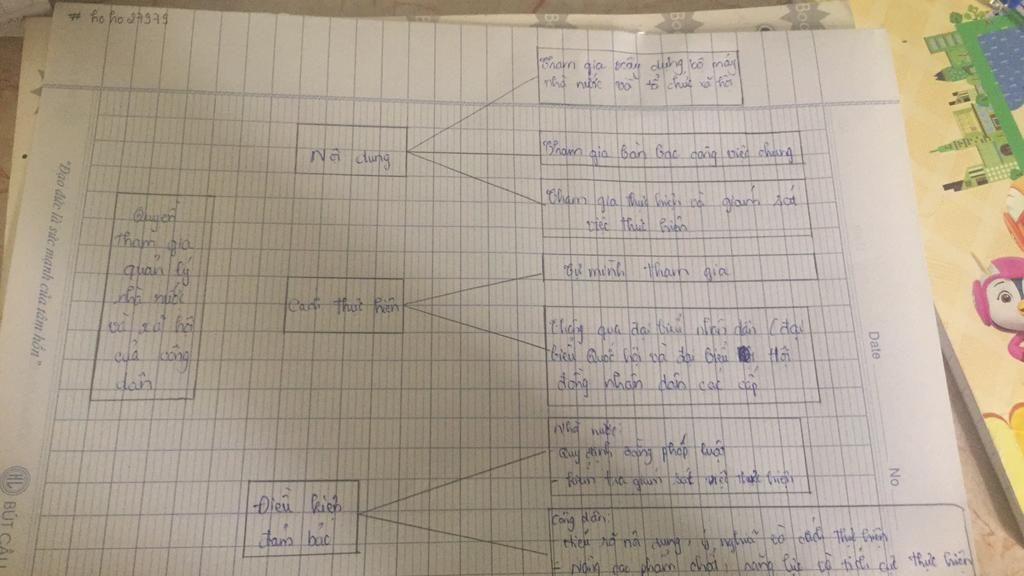 # ho ho 27979
Tham gia xây dựng bộ máy
nhà nước và tổ chức xã hội
Nội dung
Tham gia bàn bạc công việc chung
Tham gia thực hiện và giám sát
việc thực hiện
Quyền
tham gia
quản lý
nhà nước
và xã hội
của công
dân
Cách thực hiện
Tự mình tham gia
Thông qua đại biểu nhân dân (đại
biểu Quốc hội và đại biểu Hội
đồng nhân dân các cấp
Điều kiện
đảm bảo
Nhà nước:
Quy định bằng pháp luật
- kiểm tra giám sát việc thực hiện
Công dân:
- Hiểu rõ nội dung, ý nghĩa và cách thực hiện
- Nâng cao phẩm chất, năng lực và tích cực thực hiện
"Đạo đức là sức mạnh của tâm hồn"
Date
No
BÚT